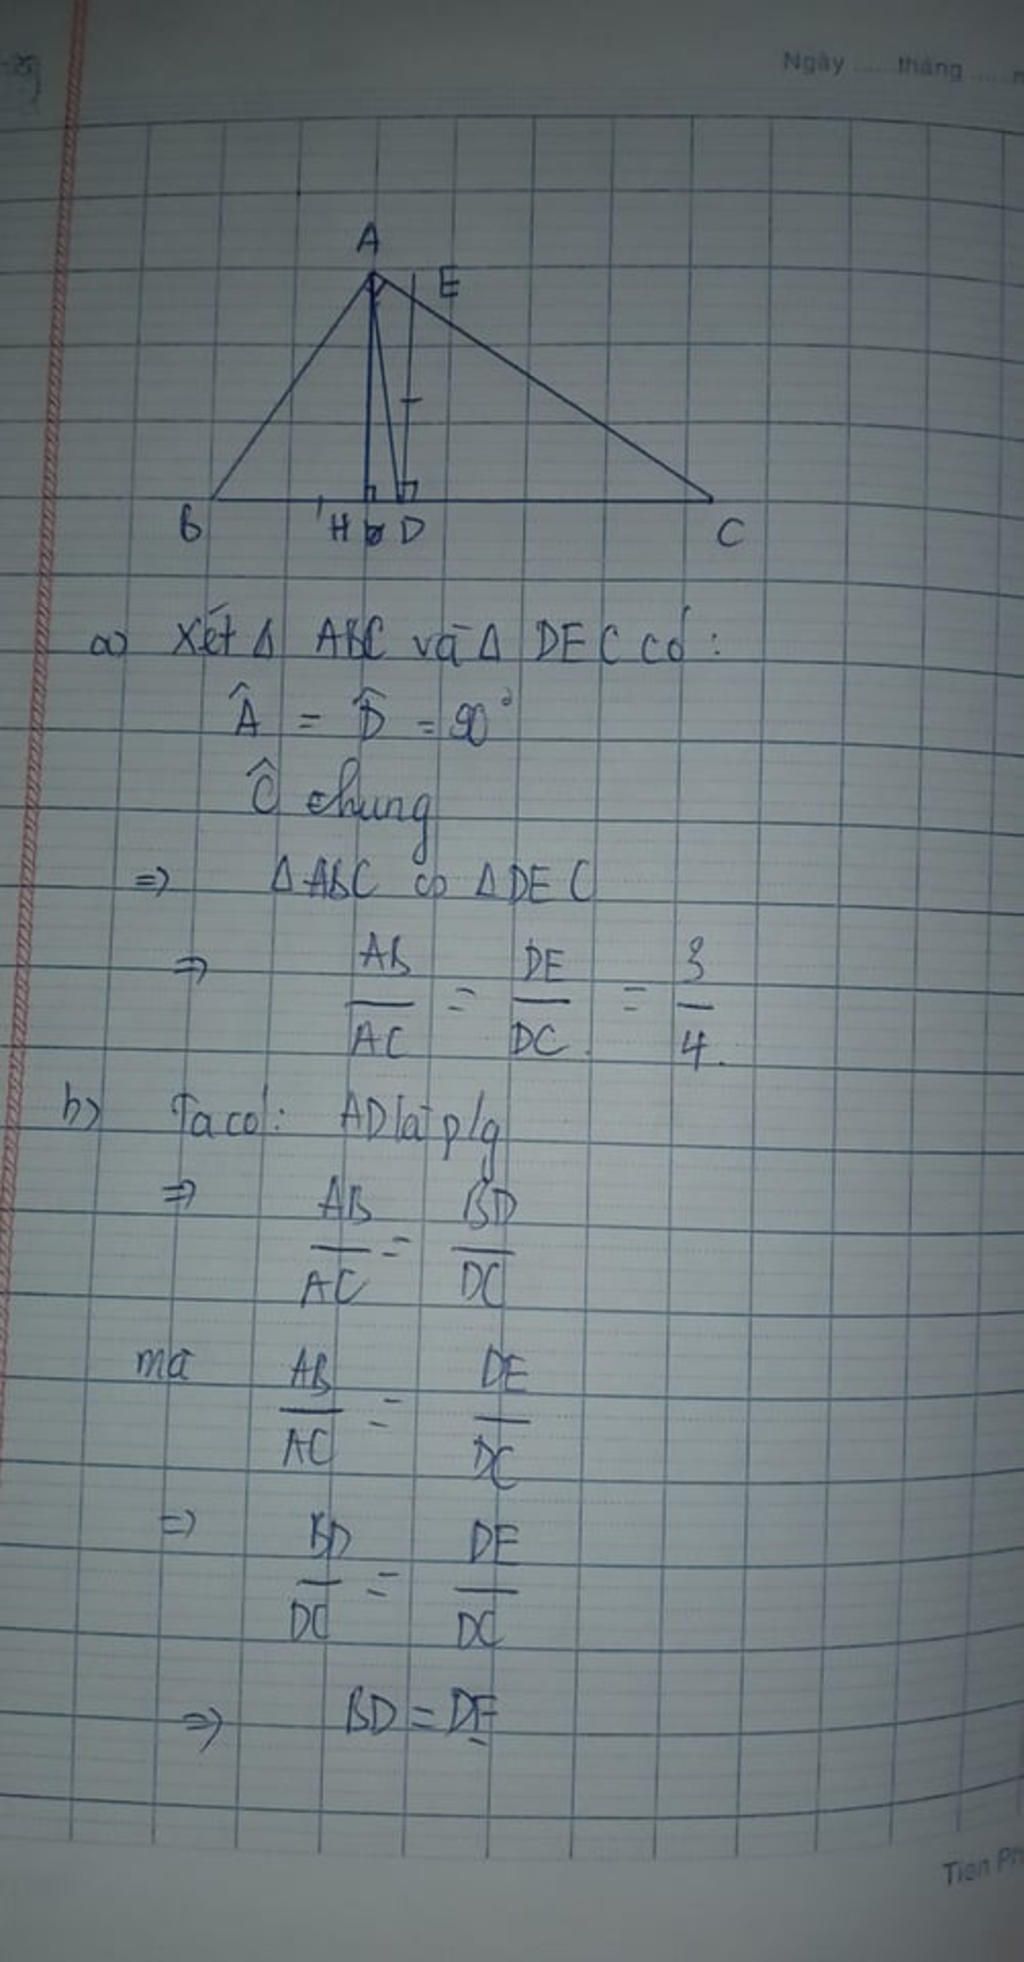 Ngày ..... tháng .....
A
E
B
H D
C
a) Xét Δ ABC và Δ DEC có:
Â = D̂ = 90°
Ĉ chung
=> Δ ABC ∽ Δ DEC
=> AB/AC = DE/DC = 3/4.
b) Ta có: AD là p/g
=> AB/AC = BD/DC
mà AB/AC = DE/DC
=> BD/DC = DE/DC
=> BD = DE